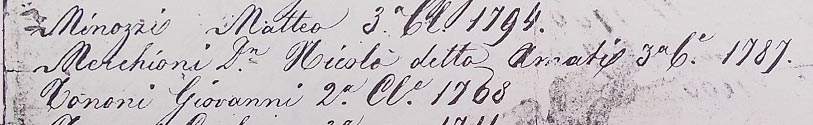 Minozzi Matteo 3.ª Cl. 1794.
Merchioni D.n Nicolò detto Amati 3ª C.e 1787.
Tononi Giovanni 2.ª Cl.e 1768